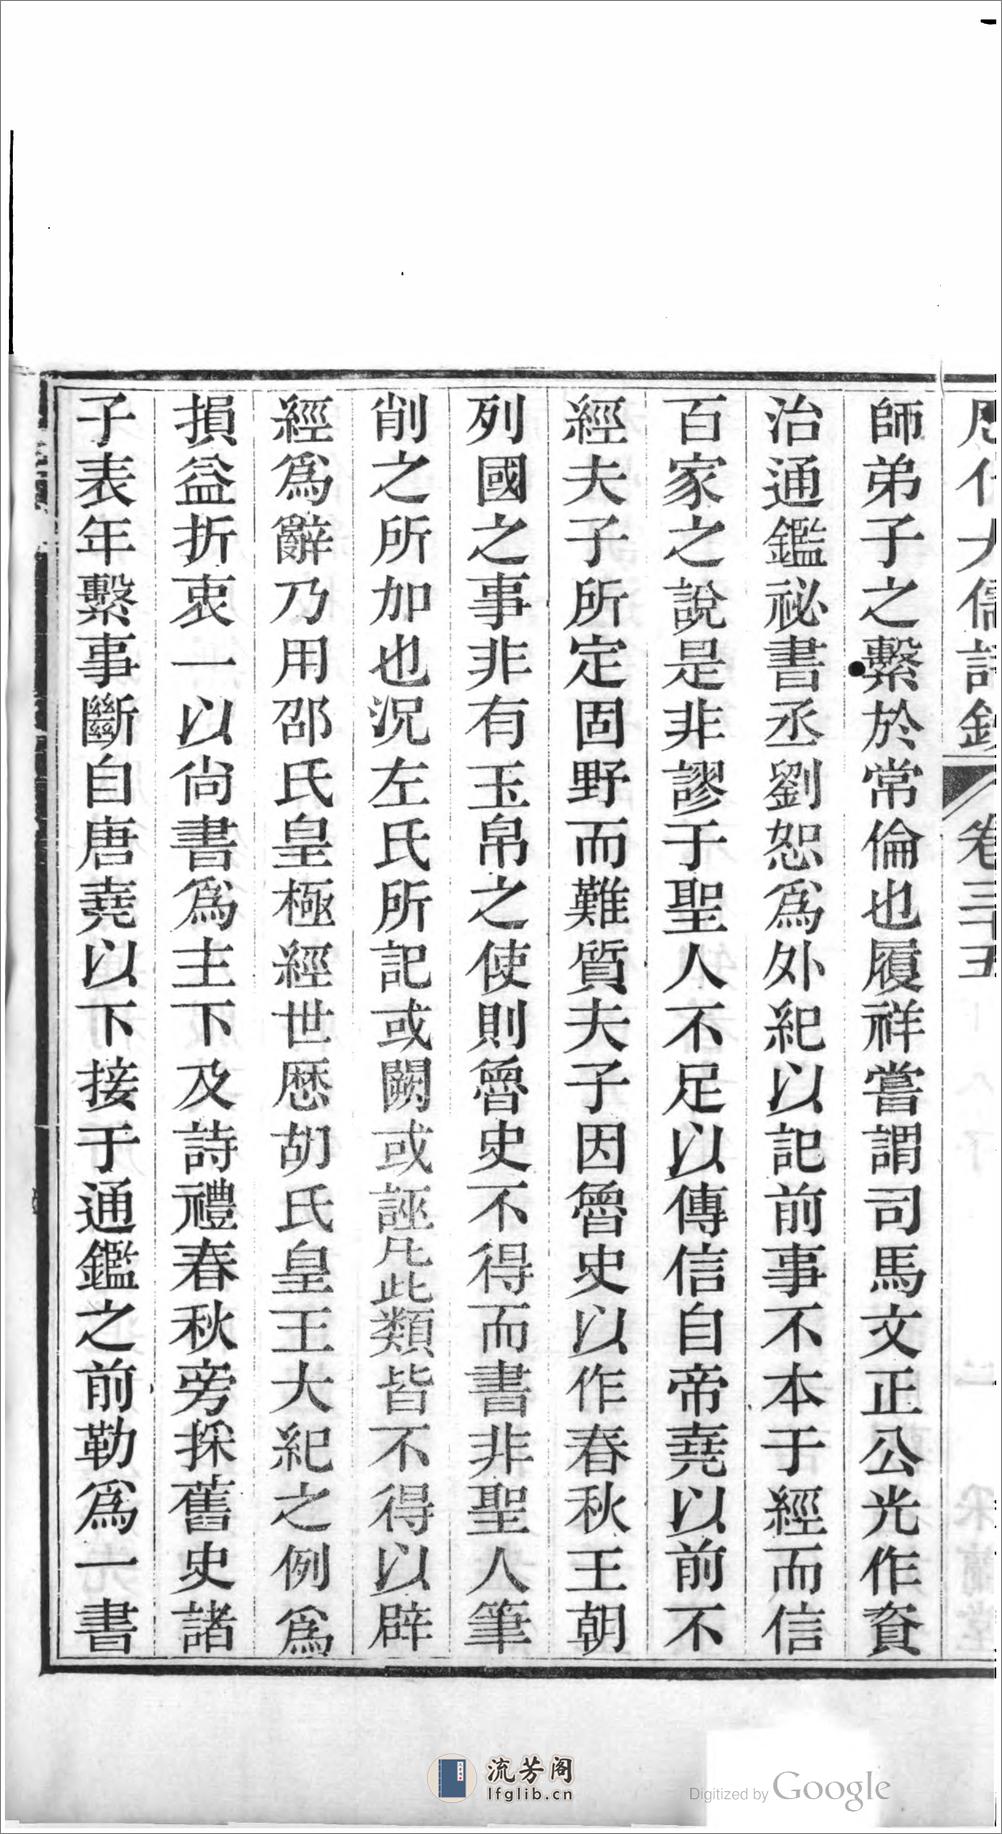 歴代大儒詩鈔 卷三十五
師弟子之繫於常倫也履祥嘗謂司馬文正公光作資
治通鑑祕書丞劉恕爲外紀以記前事不本于經而信
百家之說是非謬于聖人不足以傳信自帝堯以前不
經夫子所定固野而難質夫子因魯史以作春秋王朝
列國之事非有玉帛之使則魯史不得而書非聖人筆
削之所加也况左氏所記或闕或誣凡此類皆不得以辟
經爲辭乃用邵氏皇極經世厯胡氏皇王大紀之例爲
損益折衷一以尚書爲主下及詩禮春秋旁採舊史諸
子表年繫事斷自唐堯以下接于通鑑之前勒爲一書
流芳阁
lfglib.cn
Digitized by Google